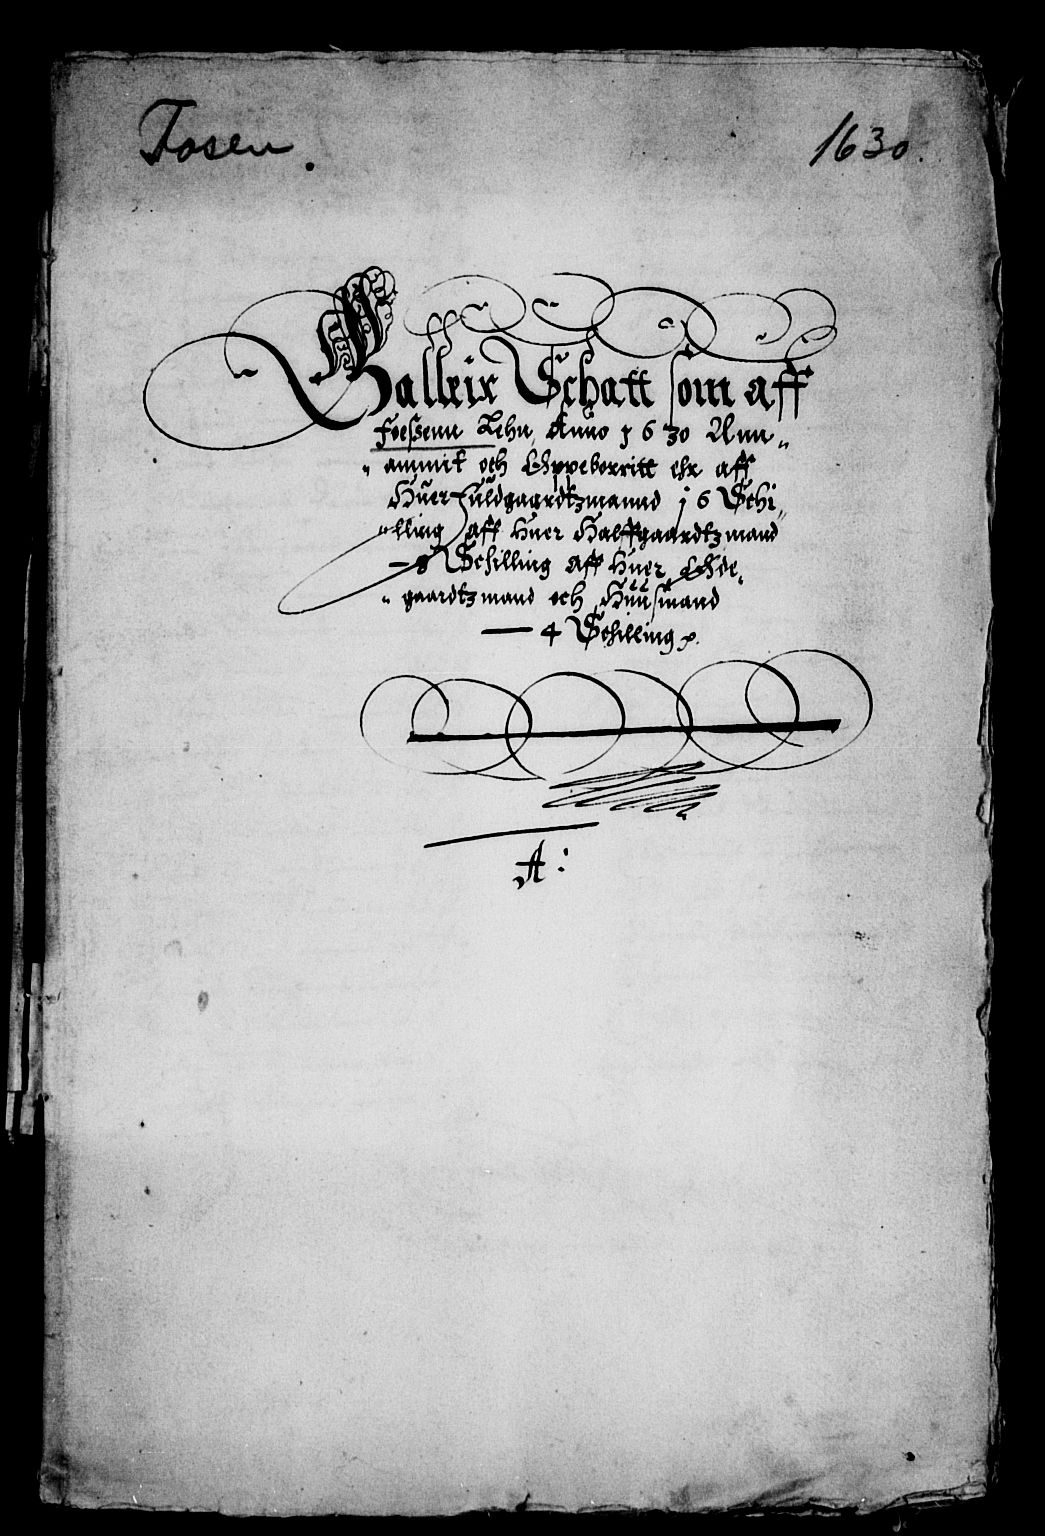 Fosen.
1630.
Galleir Schatt som aff
Foeßenn Lehn, Anno 1630 Ann„
„ammit och Oppeborritt ehr aff
Huer fuldgaardtzmannd 16 Schi„
„lling aff Huer Halffgaardtzmand
— 8 Schilling aff Huer Øde„
„gaardtzmand och Huusmand
— 4 Schilling
A: